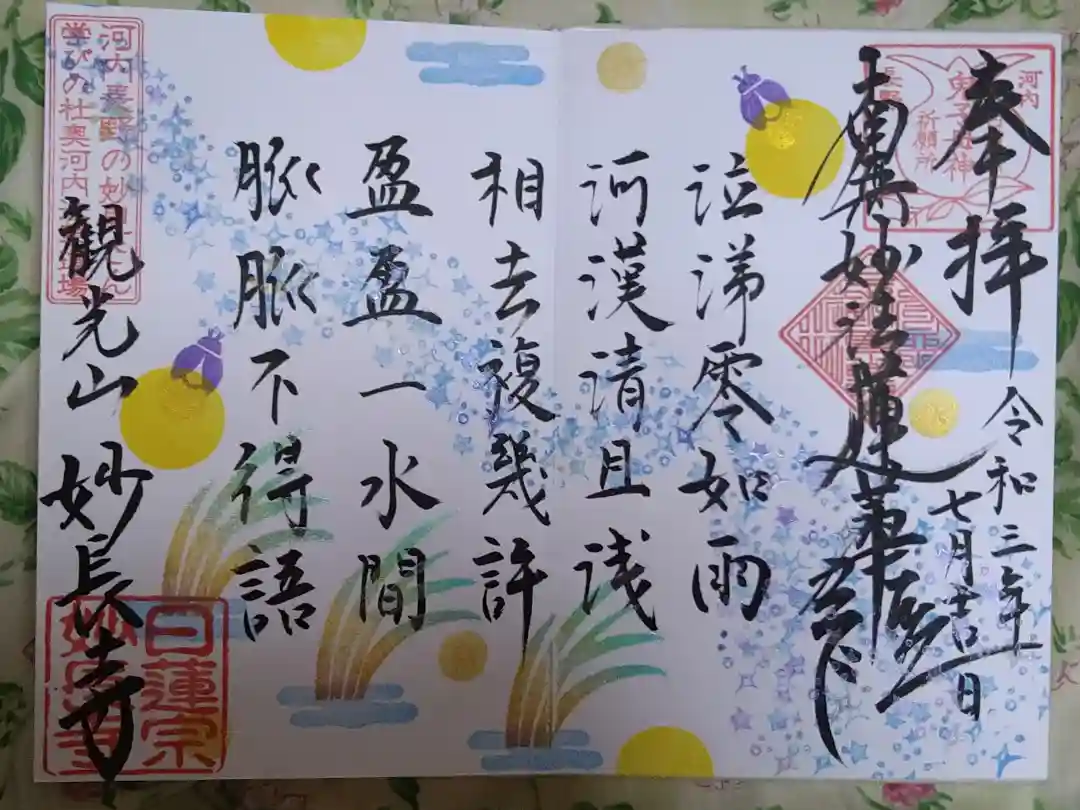 奉拝
令和三年
七月吉日
南無妙法蓮華経
泣涕零如雨
河漢清且浅
相去複幾許
盈盈一水間
脈脈不得語
観光山妙長寺
河内長野
鬼子母神
祈願所
河内長野の妙
学びの社奥河内
場
日蓮宗
妙長寺